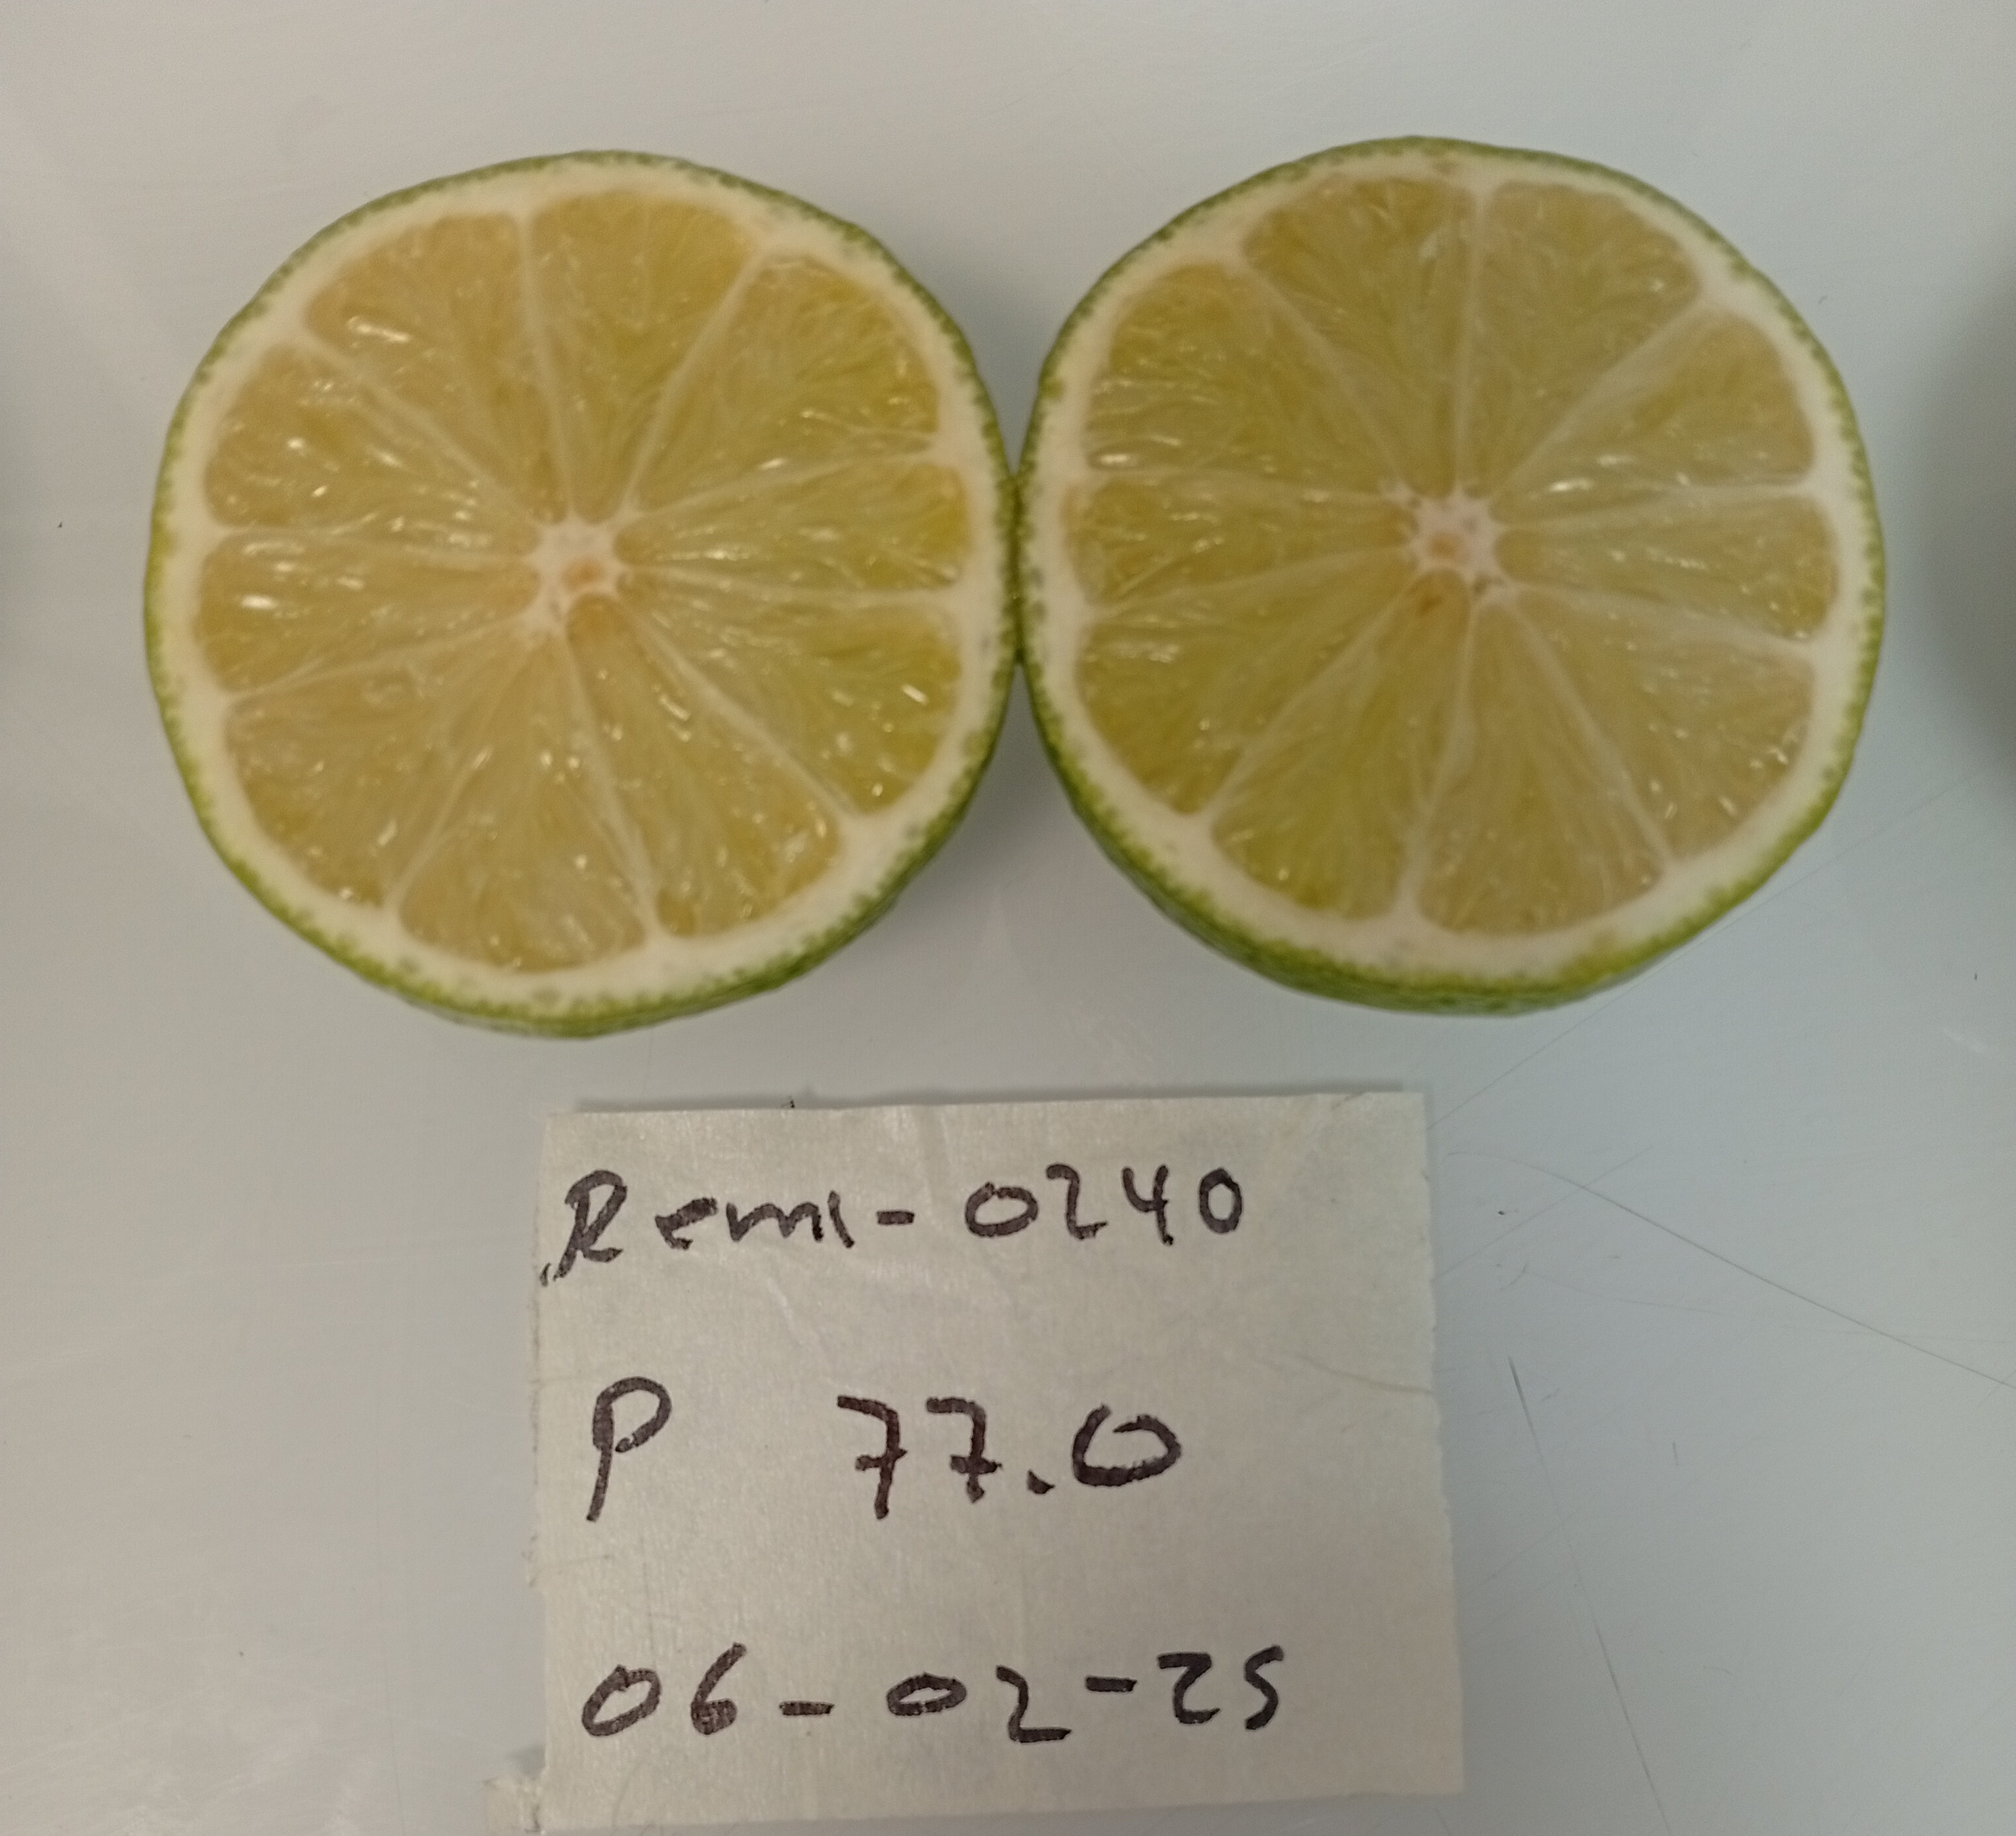 Remi-0240
P 77.0
06-02-25